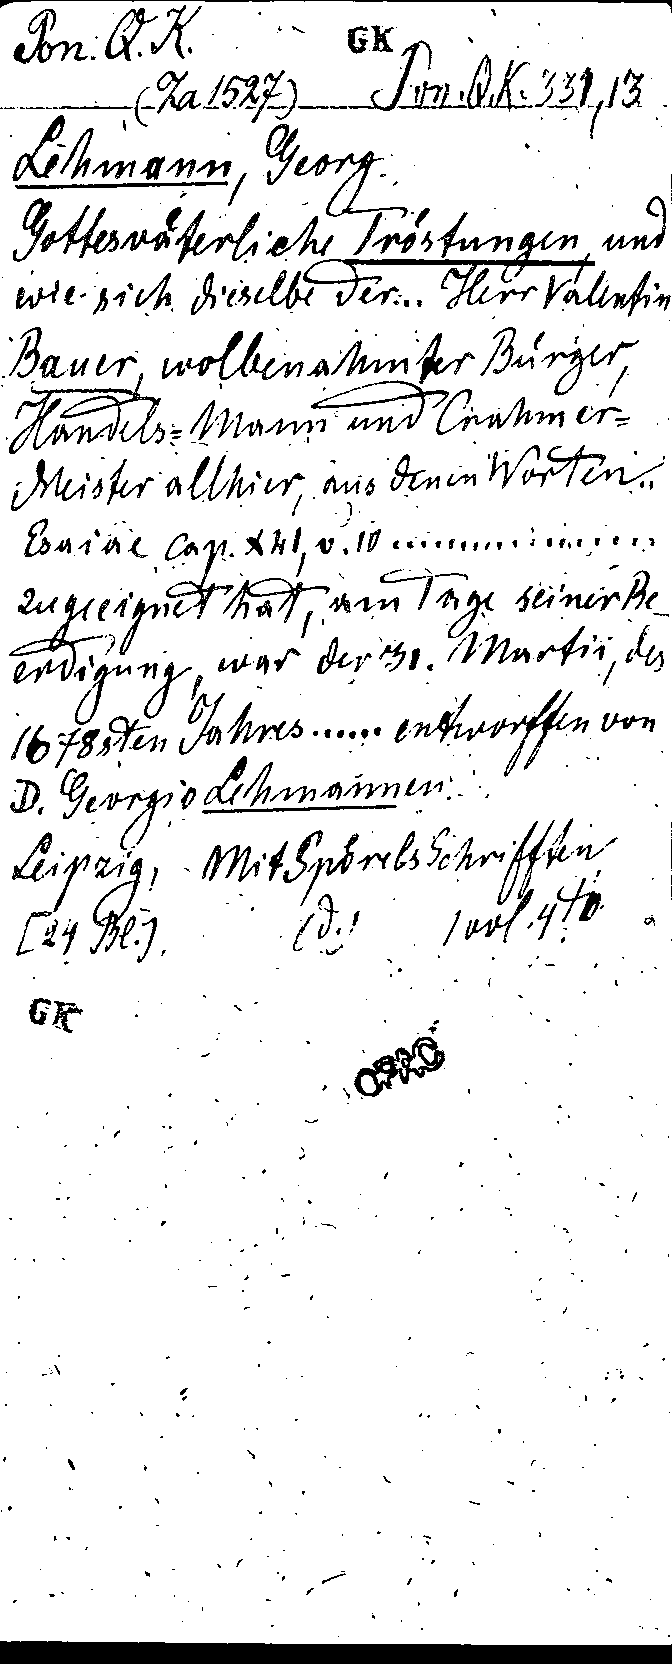 Pon. Q. K. GK
(Za 1527) Pon. Q.K. 331,13
Lehmann, Georg.
Gottesväterliche Tröstungen, und
wie sich dieselbe der... Herr Valentin
Bauer, wolbenahmter Bürger,
Handels=Mann und Crahmer=
Meister allhier, aus denen Worten..
Esaiae Cap. XLI, v. 10 ..............
zugeeignet hat, am Tage seiner Be-
erdigung, war der 31. Martii, des
1678sten Jahres ...... entworffen von
D. Georgio Lehmannen.
Leipzig, Mit Spörels Schrifften
[24 Bl.]. (d.) 1 vol. 4to
GK